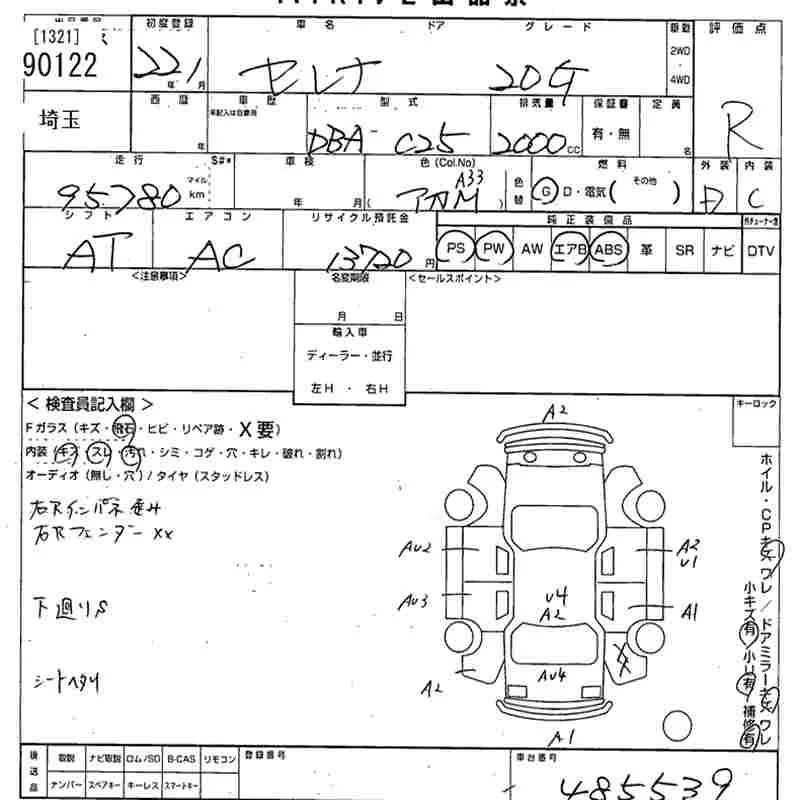 初度登録 車名 ドア グレード 駆動 評価点
[1321]
90122
22 1 年 月
セレナ 20G
2WD
4WD
R
西暦 車歴 型式 排気量 保証書 定員
年記入は自家用
埼玉
年
DBA- C25 2000cc 有・無 名
走行 S#* 車検 色(Col.No) 燃料 外装 内装
95780 マイル km
年 月
A33
色替
G D・電気(その他) D C
シフト エアコン リサイクル預託金 純正装備品
AT AC 13720円
PS PW AW エアB ABS 革 SR ナビ DTV
<注意事項> 名変期限 <セールスポイント>
月 日
輸入車
ディーラー・並行
左H ・ 右H
<検査員記入欄>
キーロック
Fガラス(キズ・飛石・ヒビ・リペア跡・X要)
内装(キズ・スレ・汚れ・シミ・コゲ・穴・キレ・破れ・割れ)
オーディオ(無し・穴)/タイヤ(スタッドレス)
右Rインパネ歪み
右Rフェンダー XX
下廻りS
シートヘタリ
A2
AU2
A2
U1
AU3
U4
A2
A1
A2
AU4
XX
A1
ホイル・CPキズワレ/ドアミラーキズワレ
小キズ有/小U有/補修有
後送品 取説 ナビ取説 ロム/SD B-CAS リモコン 登録番号 車台番号
ナンバー スペアキー キーレス スマートキー
485539